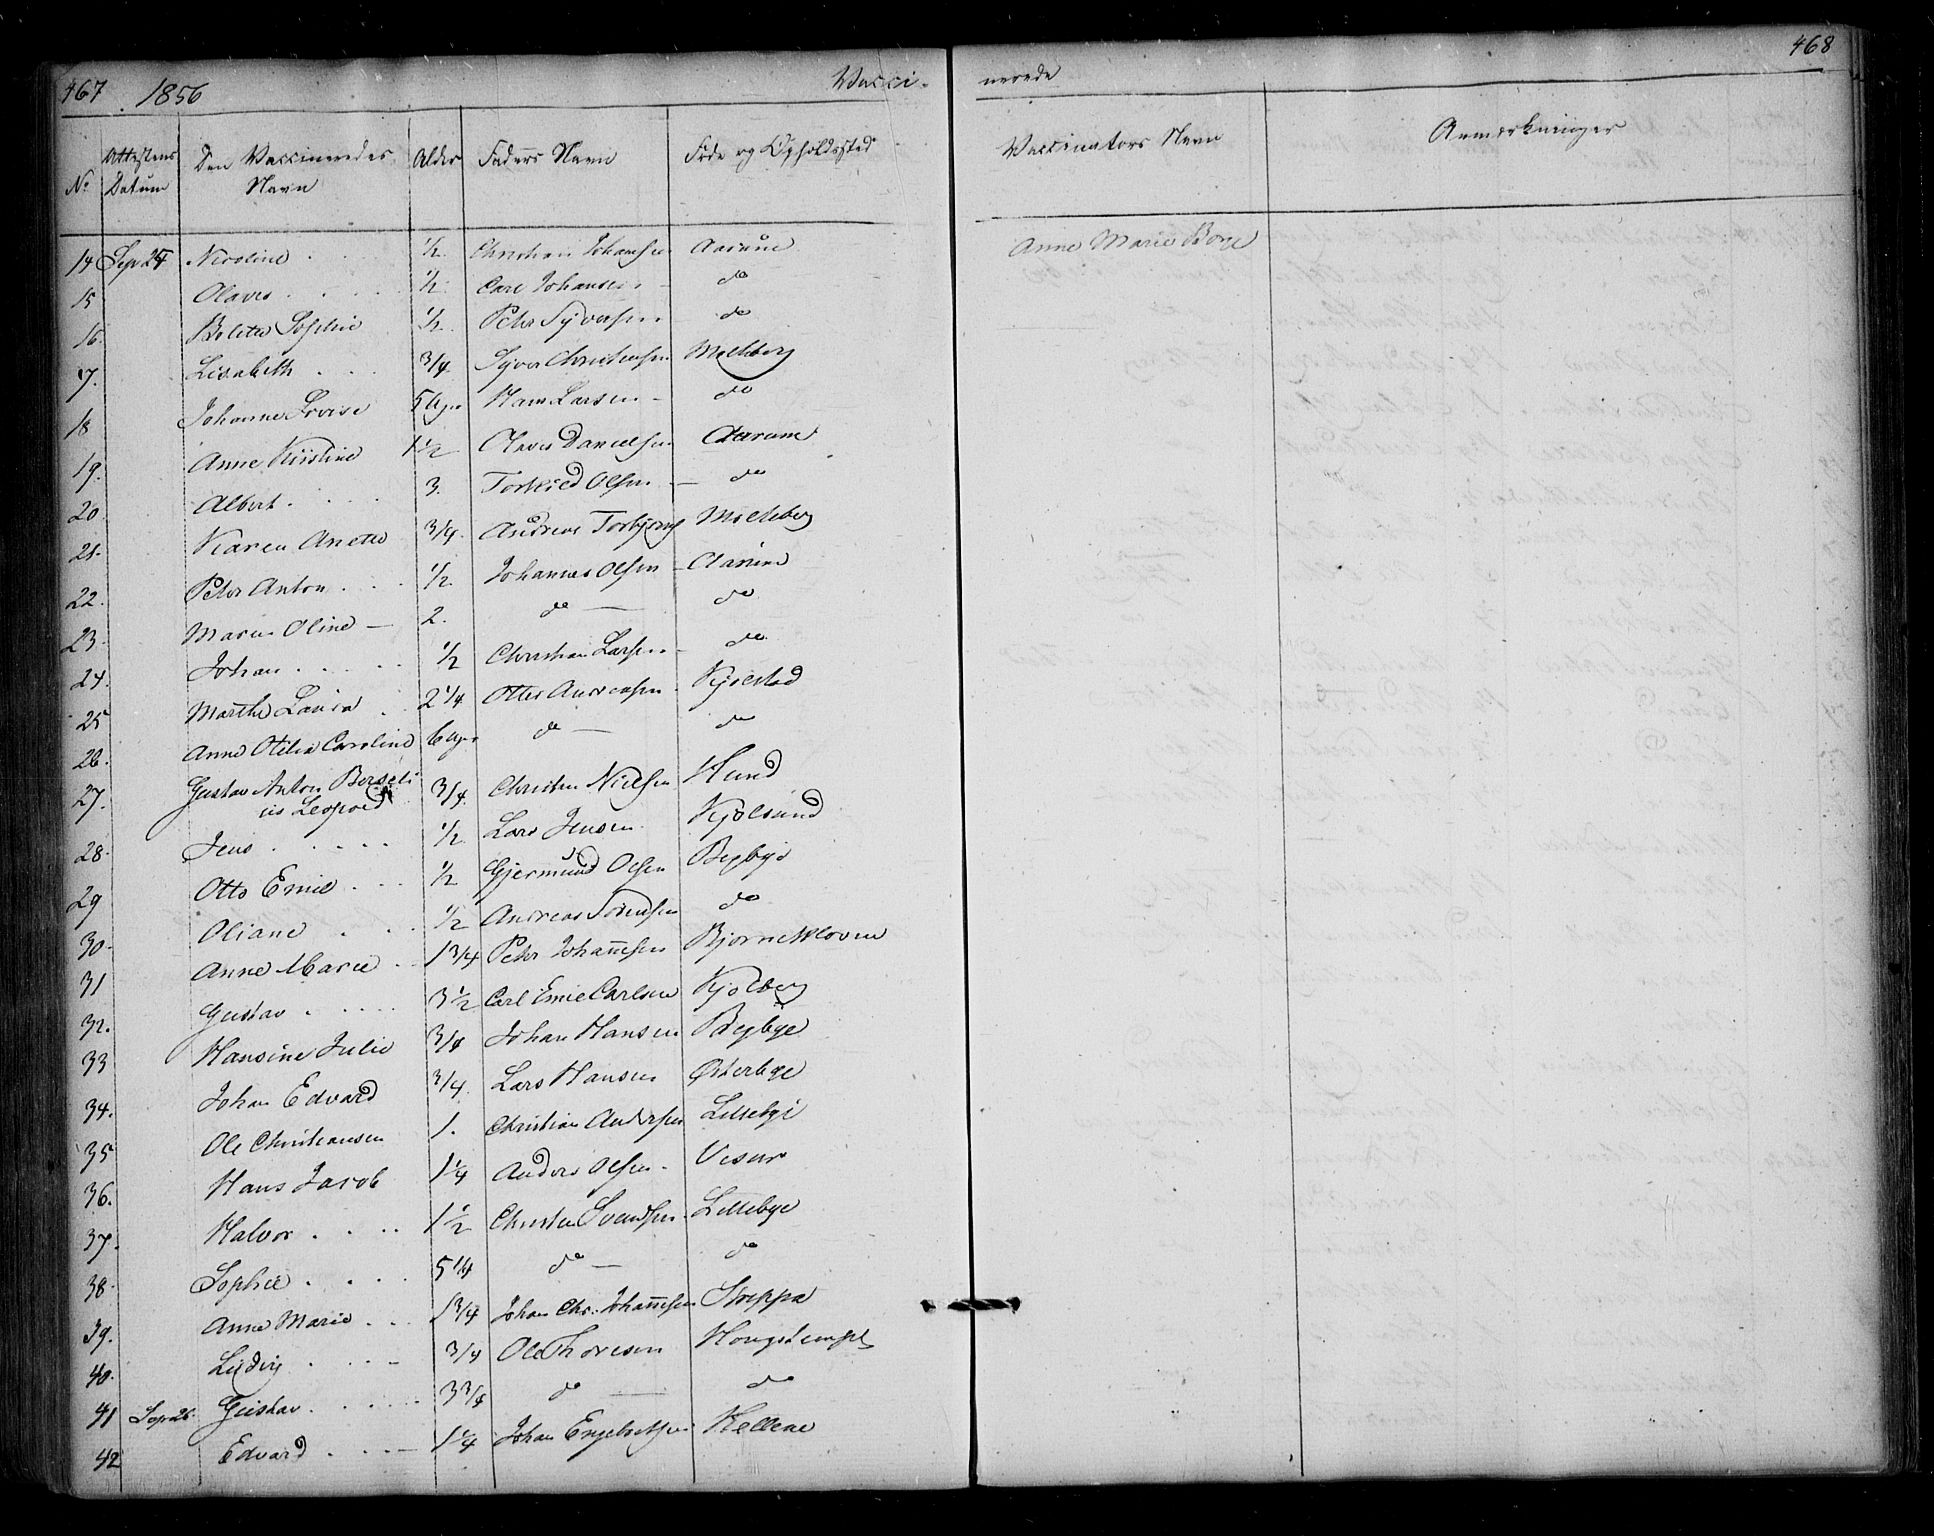 467 1856 Vacci-
nerede 468
No Attestens Datum Den Vaccineredes Navn Alder Faders Navn Føde og Opholdssted
Vaccinators Navn Anmerkninger
14 Sep 24 Nicoline . . . 1/2 Christian Johansen Aarum Anne Marie Borge
15 Olaves . . . . 1/2 Carl Johansen do
16. Bolette Sophie 1/2 Peter Syversen do
17. Lisabeth . . . 3/4 Syver Christensen Moleberg
18 Johanne Lovise 5 Uger Hans Larsen - do
19. Anne Kirstine 1 1/2 Olaves Danielsen Aarum
20 Albert . . . . 3. Torkild Olsen - do
21. Karen Anette 3/4 Andreas Torbjørns Moleberg
22. Peter Anton . . . 1/2 Johannes Olsen - Aarum
23. Maren Oline - 2. do - do
24. Johan . . . . . 1/2 Christian Larsen do
25 Marthe Lavisa . 2 1/4 Otter Andreasen Kjølstad
26. Anne Otilia Caroline 6 Uger do - do
27. Gustav Anton Berseli
us Leopold 3/4 Christen Nielsen Hund
28. Jens . . . . . 1/2 Lars Jensen Kjølsund
29 Otto Emil . . . 1/2 Gjermund Olsen Begbye
30. Oliane . . . 1/2 Andreas Sørensen do
31 Anne Marie . . 1 3/4 Peter Johannesen Bjørneklovene
32. Gustav . . . . . 3 1/2 Carl Emil Carlsen Kjølberg
33 Hansine Julie 3/4 Johan Hansen Begbye
34. Johan Edvard 3/4 Lars Hansen Østerbye
35 Ole Christiansen 1. Christian Andersen Lillebye
36. Hans Jacob 1 1/4 Anders Olsen - Visur
37. Halvor . . . . 1 1/2 Christen Svendsen Lillebye
38. Sophie . . . . 5 1/4 do - do
39. Anne Marie . . . 1 3/4 Johan Chr. Johannesen Skreppa
40. Ludvig . . . - 3/4 Ole Thoresen Hougstenspl
41 Sep 26. Gustav . . . . . 3 3/4 do - do
42 Edvard . . . - 1 1/4 Johan Engebretsen Hellene